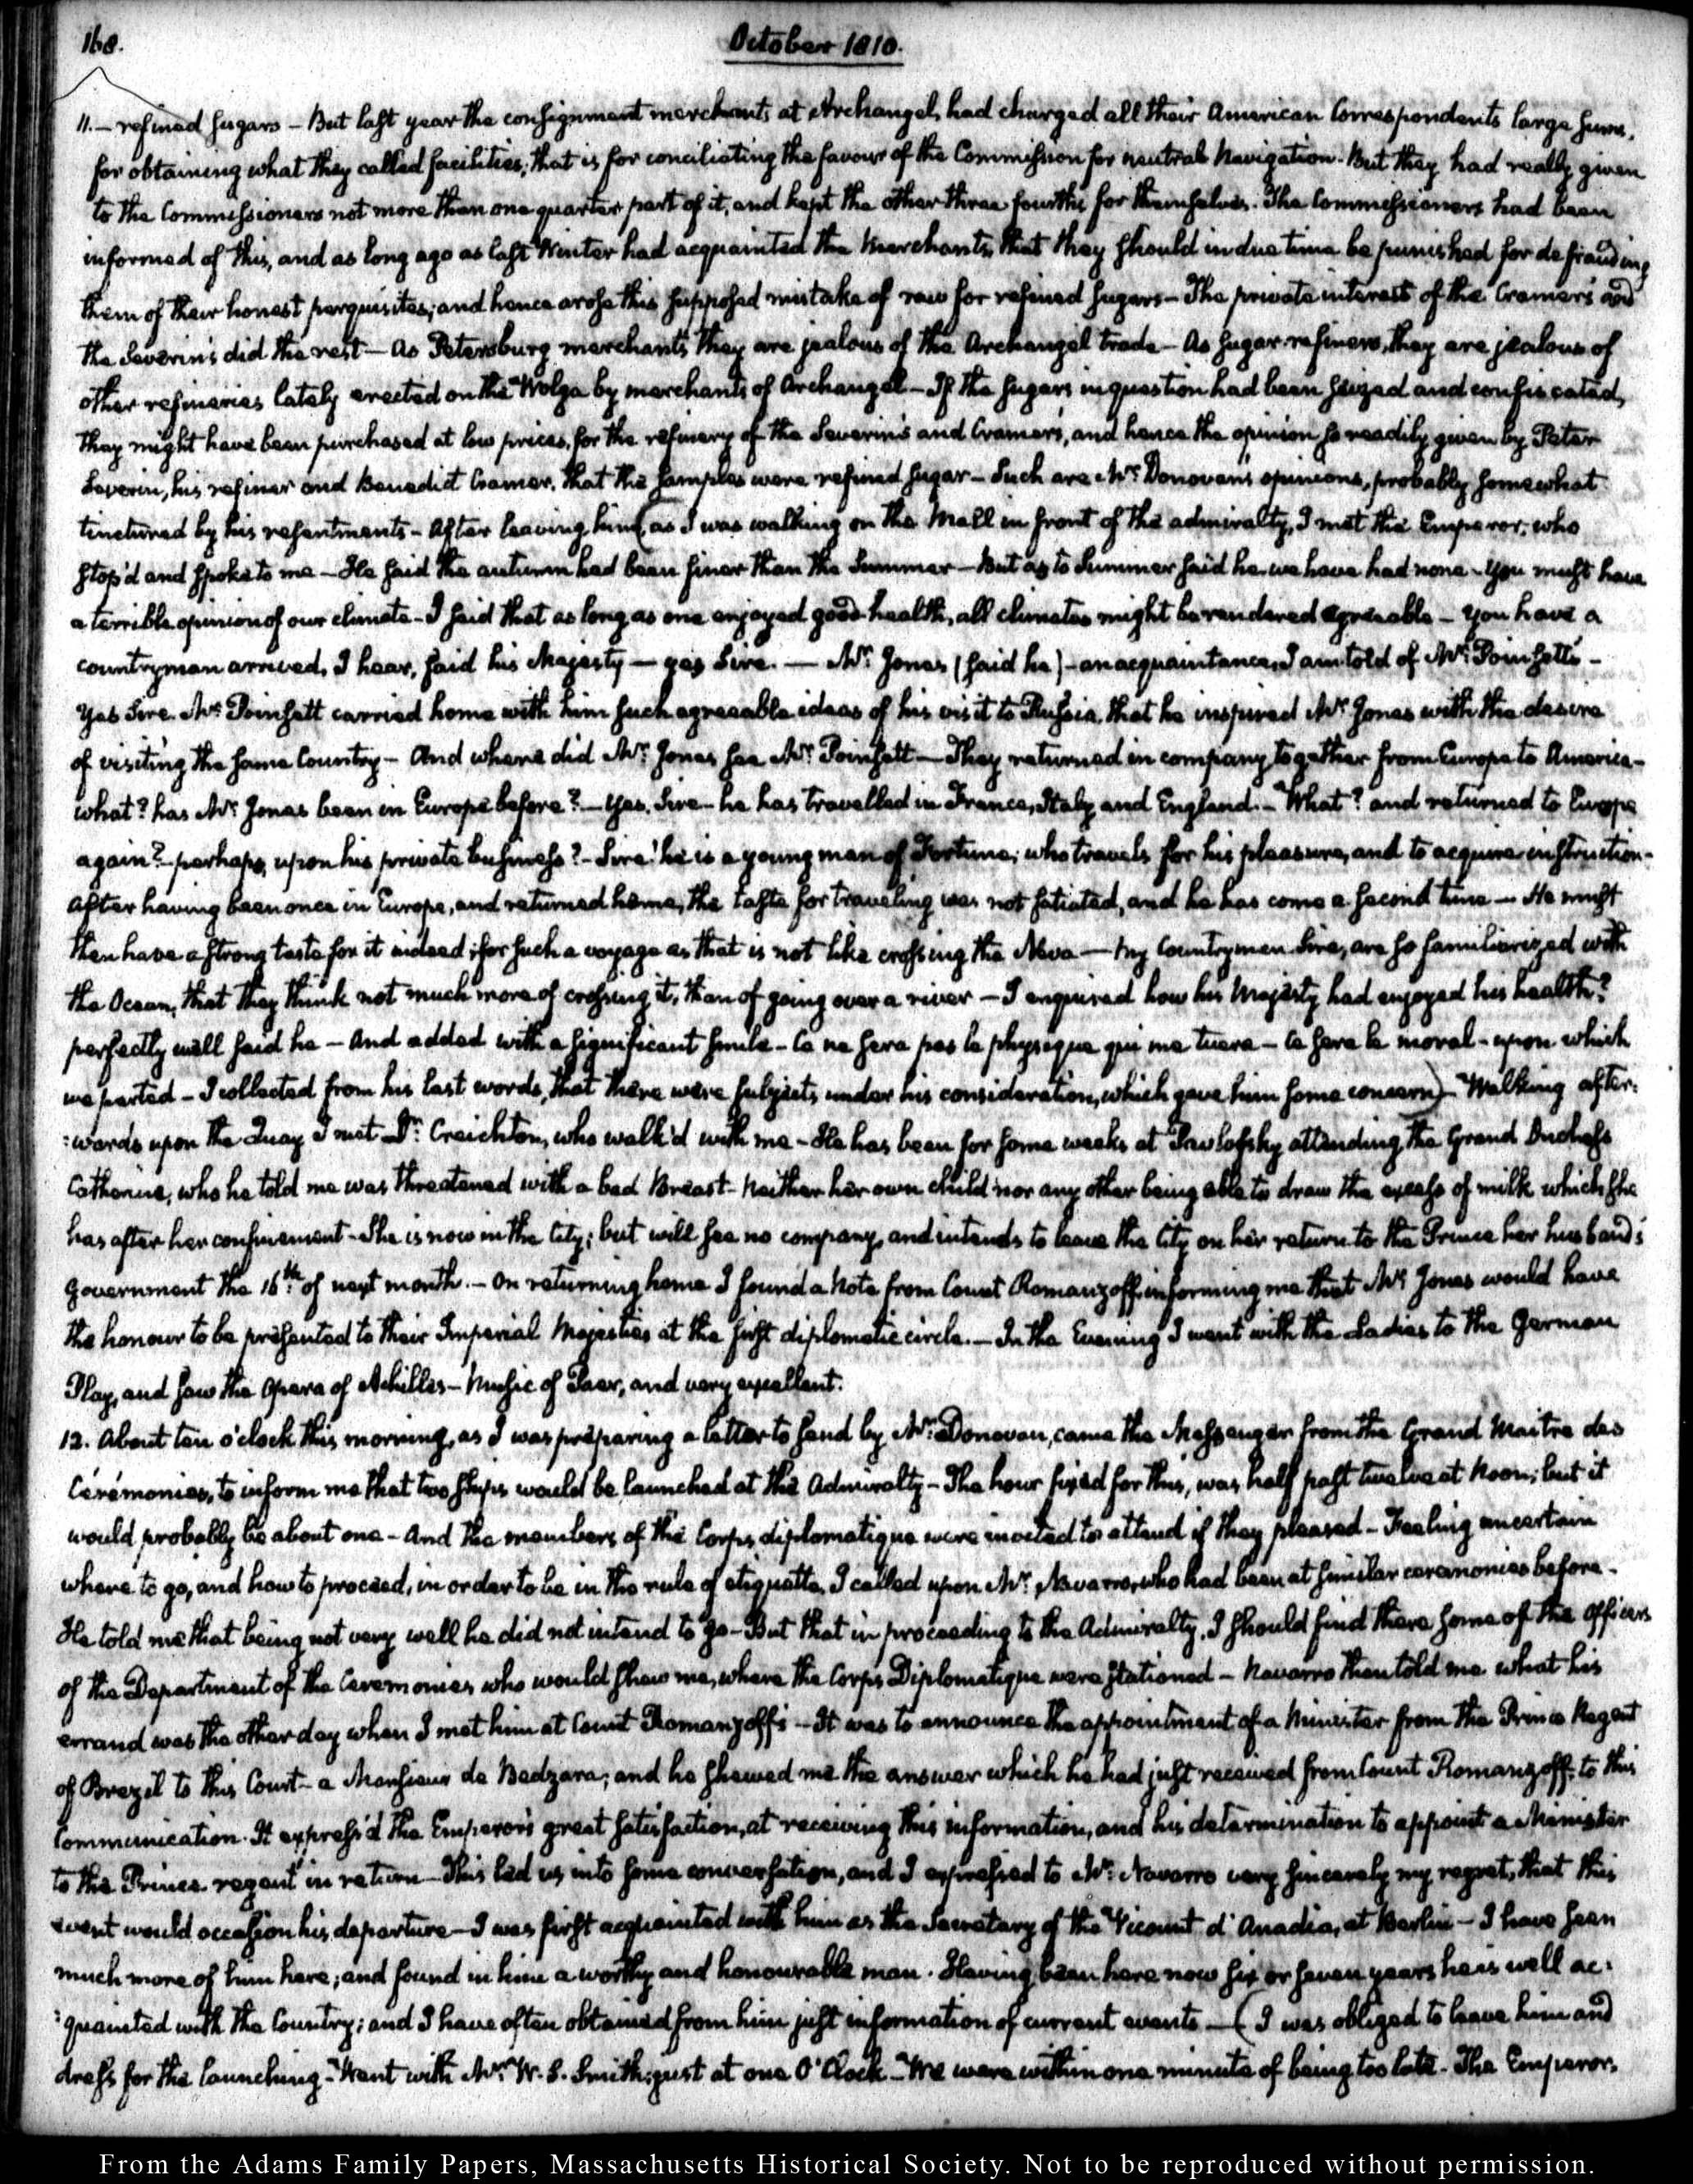 168.
October 1810.
11.— refined sugars — But last year the consignment merchants at Archangel, had charged all their American Correspondents large sums,
for obtaining what they called facilities; that is for conciliating the favour of the Commission for neutral Navigation. But they had really given
to the Commissioners not more than one quarter part of it, and kept the other three fourths for themselves. The Commissioners had been
informed of this, and as long ago as last Winter had acquainted the Merchants, that they should in due time be punished for defrauding
them of their honest perquisites; and hence arose this supposed mistake of raw for refined sugars — The private interest of the Cramers and
the Severin's did the rest — As Petersburg merchants they are jealous of the Archangel trade — As sugar refiners, they are jealous of
other refineries lately erected on the Wolga by merchants of Archangel — If the sugars in question had been seized and confiscated,
they might have been purchased at low prices, for the refinery of the Severin's and Cramers, and hence the opinion so readily given by Peter
Severin, his refiner and Benedict Cramer, that the samples were refined sugar — Such are Mr. Donovan's opinions, probably somewhat
tinctured by his resentments — After leaving him (as I was walking on the Mall in front of the admiralty, I met the Emperor, who
stop'd and spoke to me — He said the autumn had been finer than the Summer — But as to Summer said he we have had none — You must have
a terrible opinion of our climate — I said that as long as one enjoyed good health, all climates might be rendered agreeable — You have a
countryman arrived, I hear, said his Majesty — yes Sire. — Mr. Jones (said he) — an acquaintance, I am told of Mr. Poinsett's —
Yes Sire. Mr. Poinsett carried home with him such agreeable ideas of his visit to Russia, that he inspired Mr. Jones with the desire
of visiting the same Country — And where did Mr. Jones see Mr. Poinsett — They returned in company together from Europe to America —
what? has Mr. Jones been in Europe before? — Yes, Sire — he has travelled in France, Italy and England. — What? and returned to Europe
again? perhaps, upon his private business? — Sire! he is a young man of Fortune; who travels for his pleasure, and to acquire instruction —
After having been once in Europe, and returned home, the taste for traveling was not satiated, and he has come a second time — He must
then have a strong taste for it indeed; for such a voyage as that is not like crossing the Neva — My Countrymen Sire, are so familiarized with
the Ocean, that they think not much more of crossing it, than of going over a river — I enquired how his Majesty had enjoyed his health?
perfectly well said he — And added with a significant smile — Ce ne sera pas le physique qui me tuera — ce sera le moral — upon which
we parted — I collected from his last words, that there were subjects under his consideration, which gave him some concern) — Walking after:
:wards upon the Quay I met Dr. Creichton, who walk'd with me — He has been for some weeks at Pawlofsky attending the Grand Duchess
Catherine, who he told me was threatened with a bad Breast — Neither her own child nor any other being able to draw the excess of milk which she
has after her confinement — She is now in the City; but will see no company, and intends to leave the City on her return to the Prince her husband's
Government the 16th. of next month. — On returning home I found a Note from Count Romanzoff informing me that Mr. Jones would have
the honour to be presented to their Imperial Majesties at the first diplomatic circle. — In the Evening I went with the Ladies to the German
Play, and saw the Opera of Achilles — Music of Paer, and very excellent.
12. About ten o'clock this morning, as I was preparing a letter to send by Mr. Donovan, came the Messenger from the Grand Maitre des
Cérémonies, to inform me that two ships would be launched at the Admiralty — The hour fixed for this, was half past twelve at Noon; but it
would probably be about one — And the members of the Corps diplomatique were invited to attend if they pleased — Feeling uncertain
where to go, and how to proceed, in order to be in the rule of etiquette, I called upon Mr. Navarro, who had been at similar ceremonies before —
He told me that being not very well he did not intend to go — But that in proceeding to the Admiralty, I should find there some of the Officers
of the Department of the Ceremonies who would shew me, where the Corps Diplomatique were stationed — Navarro then told me what his
errand was the other day when I met him at Count Romanzoff's — It was to announce the appointment of a Minister from the Prince Regent
of Brazil to this Court — a Monsieur de Bedzara; and he shewed me the answer which he had just received from Count Romanzoff, to this
Communication. It express'd the Emperor's great satisfaction, at receiving this information, and his determination to appoint a Minister
to the Prince regent in return — This led us into some conversation, and I expressed to Mr. Navarro very sincerely my regret, that this
event would occasion his departure — I was first acquainted with him as the Secretary of the Vicount d'Anadia, at Berlin — I have seen
much more of him here; and found in him a worthy and honourable man. Having been here now six or seven years he is well ac:
:quainted with the Country; and I have often obtained from him just information of current events — (I was obliged to leave him and
dress for the launching — Went with Mr. W. S. Smith, just at one O'Clock — We were within one minute of being too late — The Emperor,
From the Adams Family Papers, Massachusetts Historical Society. Not to be reproduced without permission.